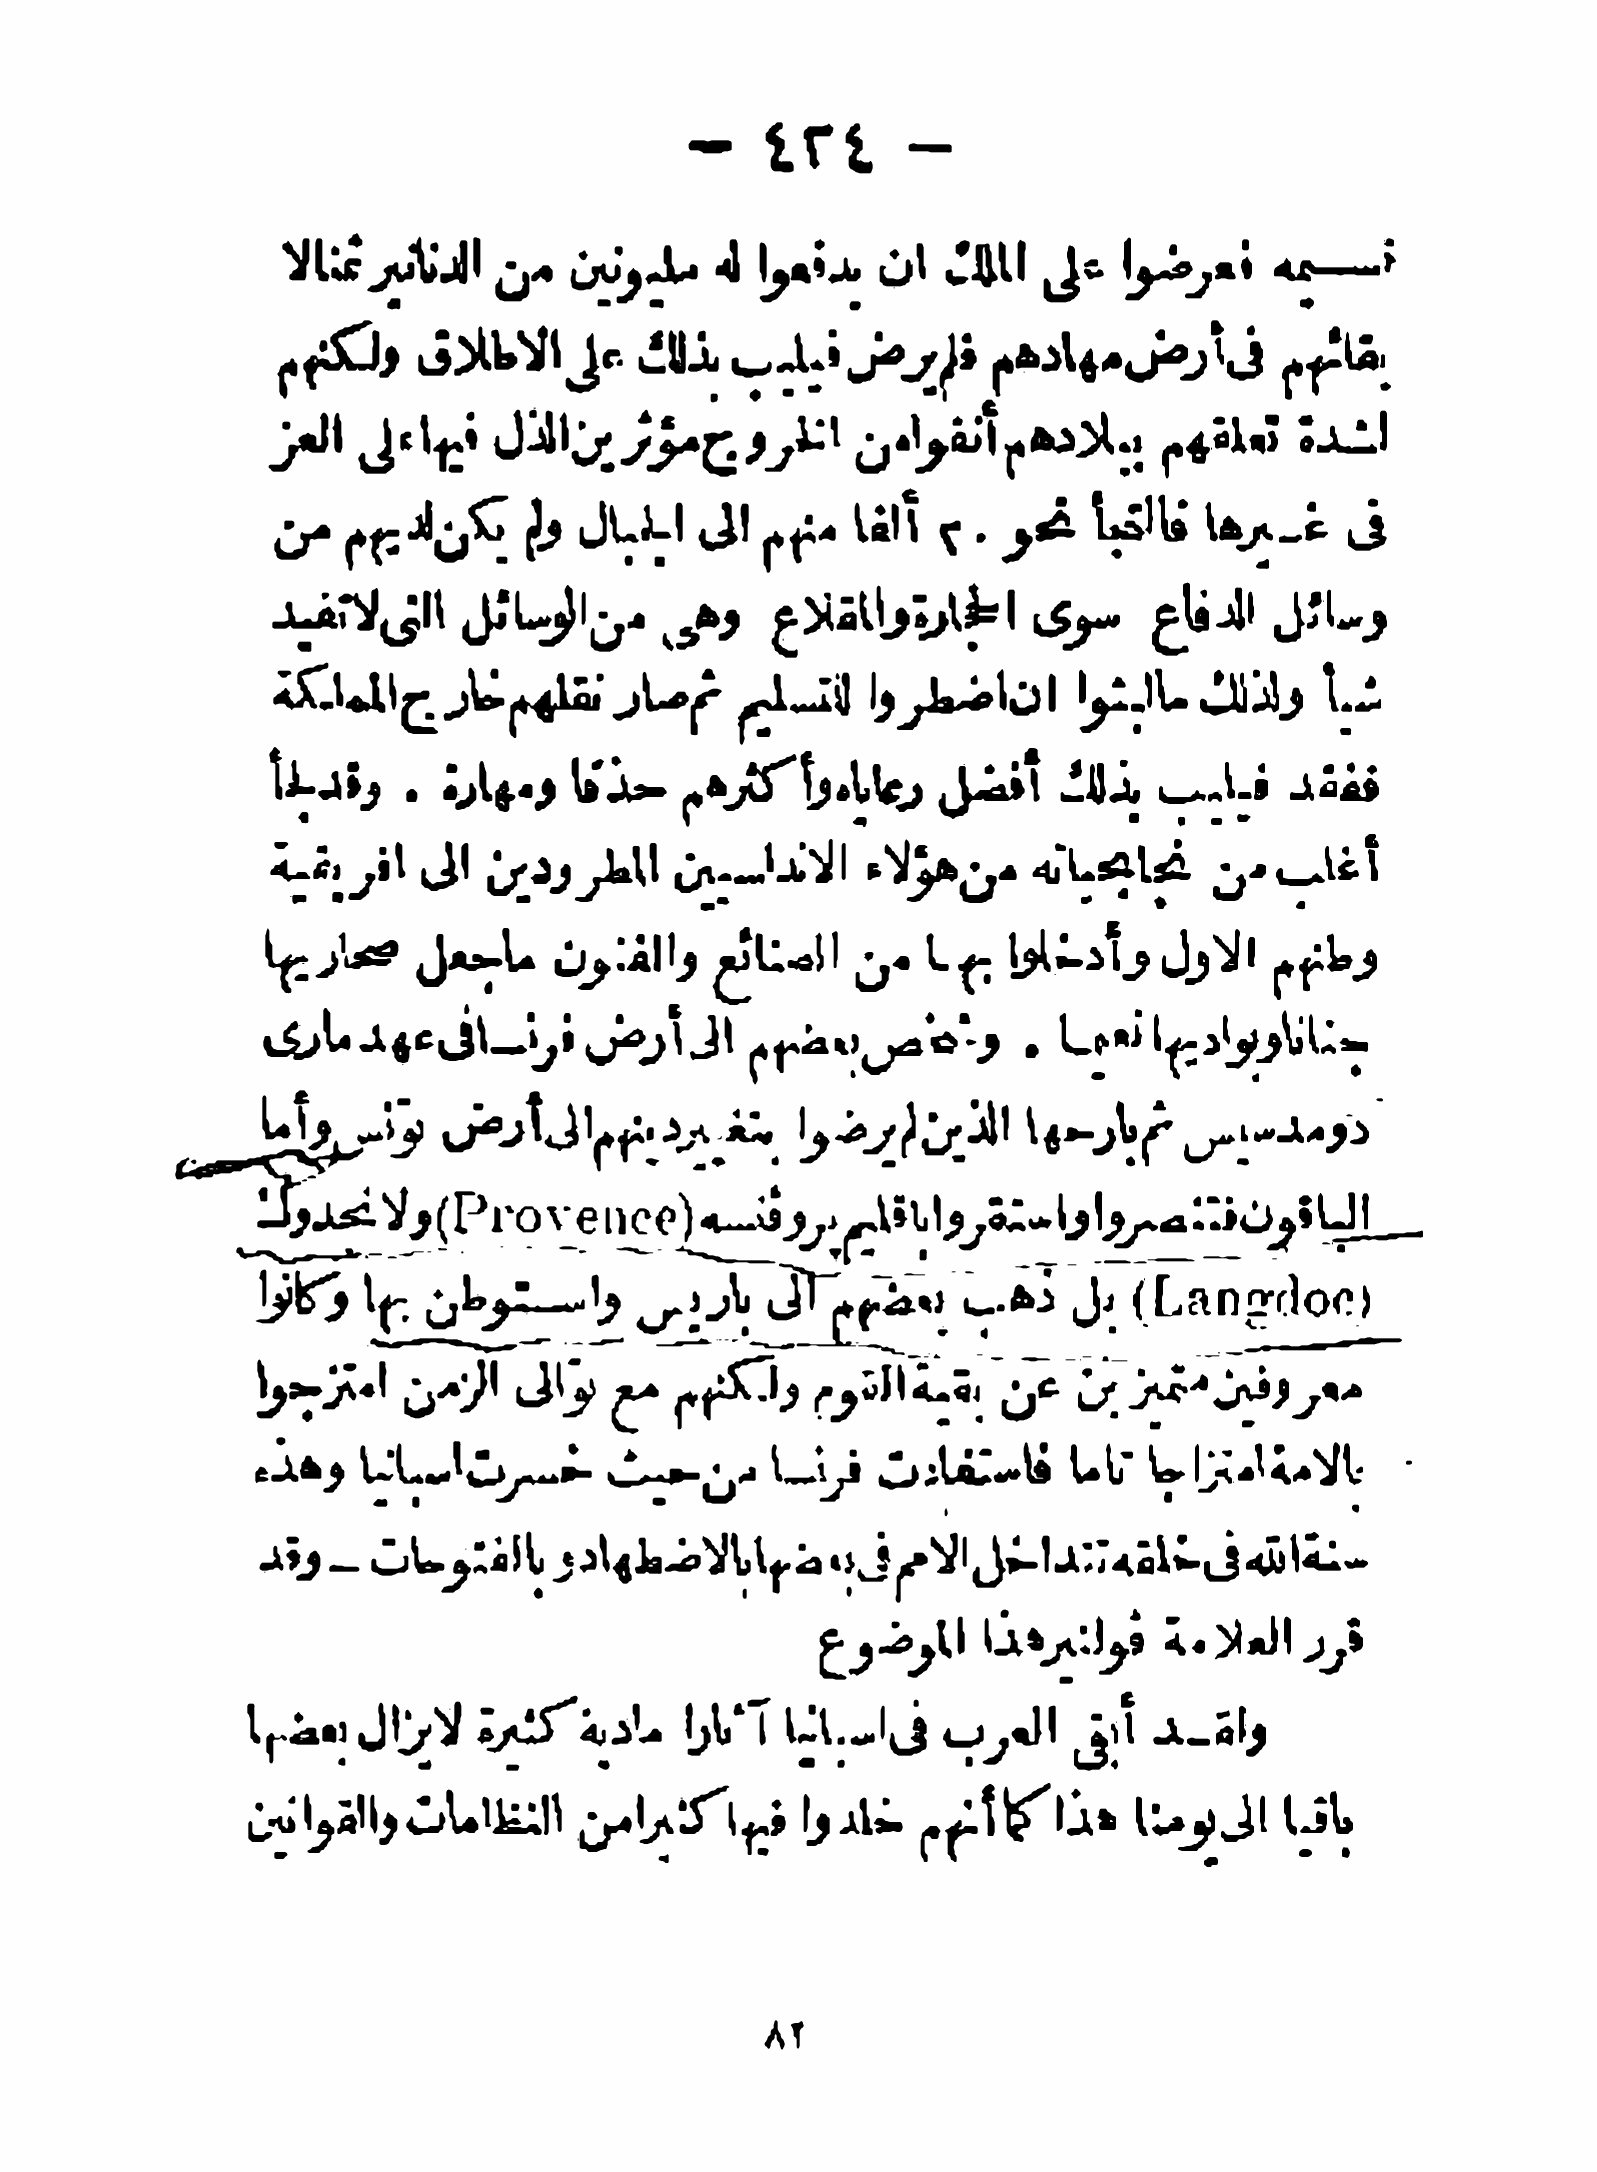 — ٤٢٤ —
نسيمه فعرضوا على الملك ان يدفعوا له مليونين من الدنانير ثمنا لا
بقائهم فى أرض مهادهم فلم يرض فيليب بذلك على الاطلاق ولكنهم
لشدة تعلقهم ببلادهم أنفوا من الخروج مؤثرين الذل فيها على العز
فى غيرها فالتجأ نحو ٢٠ ألفا منهم الى الجبال ولم يكن لديهم من
وسائل الدفاع سوى الحجارة والمقلاع وهى من الوسائل التى لا تفيد
شيأ ولذلك ما لبثوا ان اضطروا للتسليم ثم صار نقلهم خارج المملكة
ففقد فيليب بذلك أفضل رعاياه وأكثرهم حذقا ومهارة . وقد لجأ
أغلب من نجا بحياته من هؤلاء الاندلسيين المطرودين الى افريقية
وطنهم الاول وأدخلوا بها من الصنائع والفنون ما جعل صحاريها
جنانا وبواديها نعيما . وشخص بعضهم الى أرض فرنسا فى عهد مارى
دومدسيس ثم بارحها الذين لم يرضوا بتغيير دينهم الى أرض تونس وأما
الباقون فتنصروا واستقروا باقليم پروڤنسه (Provence) ولانجدوك
(Langdoc) بل ذهب بعضهم الى باريس واستوطن بها وكانوا
معروفين متميزين عن بقية القوم ولكنهم مع توالى الزمن امتزجوا
بالامة امتزاجا تاما فاستفادت فرنسا من حيث خسرت اسبانيا وهذه
سنة الله فى خلقه تتداخل الامم فى بعضها بالاضطهاد و بالفتوحات ــ وقد
قرر العلامة ڤولتير هذا الموضوع
ولقد أبقى العرب فى اسبانيا آثارا مادية كثيرة لا يزال بعضها
باقيا الى يومنا هذا كما أنهم خلدوا فيها كثيرا من النظامات والقوانين
٨٢